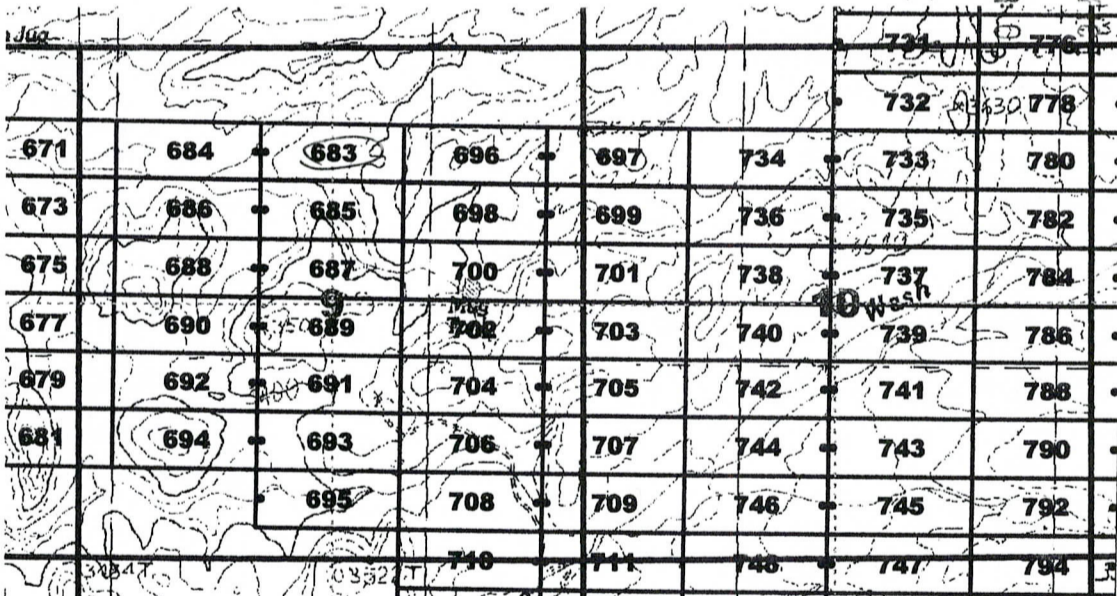 731 776
732 778
671 684 683 696 697 734 733 780
673 686 685 698 699 736 735 782
675 688 687 700 701 738 737 784
9 10 Wash
677 690 689 702 703 740 739 786
679 692 691 704 705 742 741 788
681 694 693 706 707 744 743 790
695 708 709 746 745 792
710 711 748 747 794
3484T